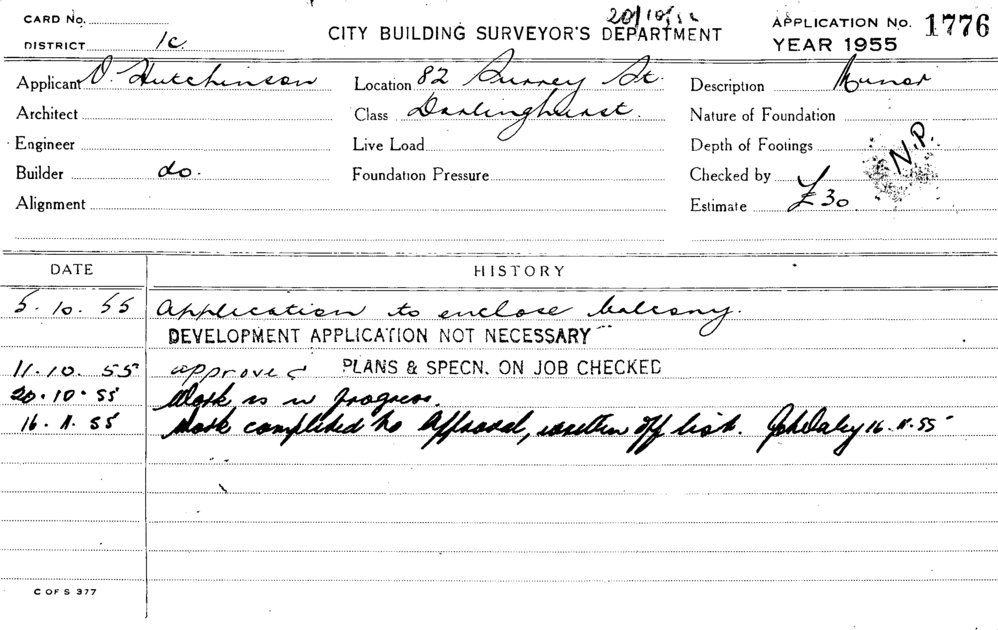 CARD No.
DISTRICT 1c
CITY BUILDING SURVEYOR'S DEPARTMENT
20/10/55
APPLICATION No. 1776
YEAR 1955
Applicant O. Hutchinson
Location 82 Surrey St.
Description Minor
Architect
Class Darlinghurst.
Nature of Foundation
Engineer
Live Load
Depth of Footings
N.P.
Builder do.
Foundation Pressure
Checked by
Alignment
Estimate £30
DATE HISTORY
5.10.55 Application to enclose balcony.
DEVELOPMENT APPLICATION NOT NECESSARY
11.10.55 approved PLANS & SPECN. ON JOB CHECKED
20.10.55 Work is in progress.
16.11.55 Work completed to approval, written off list. 16.11.55
C OF S 377